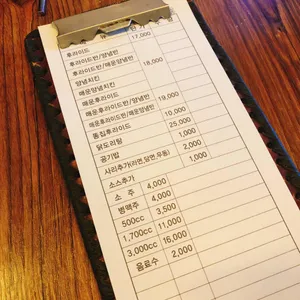 후라이드 17,000
후라이드반/양념반
후라이드반/매운양념반 18,000
양념치킨
매운양념치킨
매운후라이드
매운후라이드반/양념반 19,000
매운후라이드반/매운양념반
똥집후라이드 10,000
닭도리탕 25,000
공기밥 1,000
사리추가(라면,당면,우동) 2,000
소스추가 1,000
소 주 4,000
병맥주 4,000
500cc 3,500
1,700cc 11,000
3,000cc 16,000
음료수 2,000